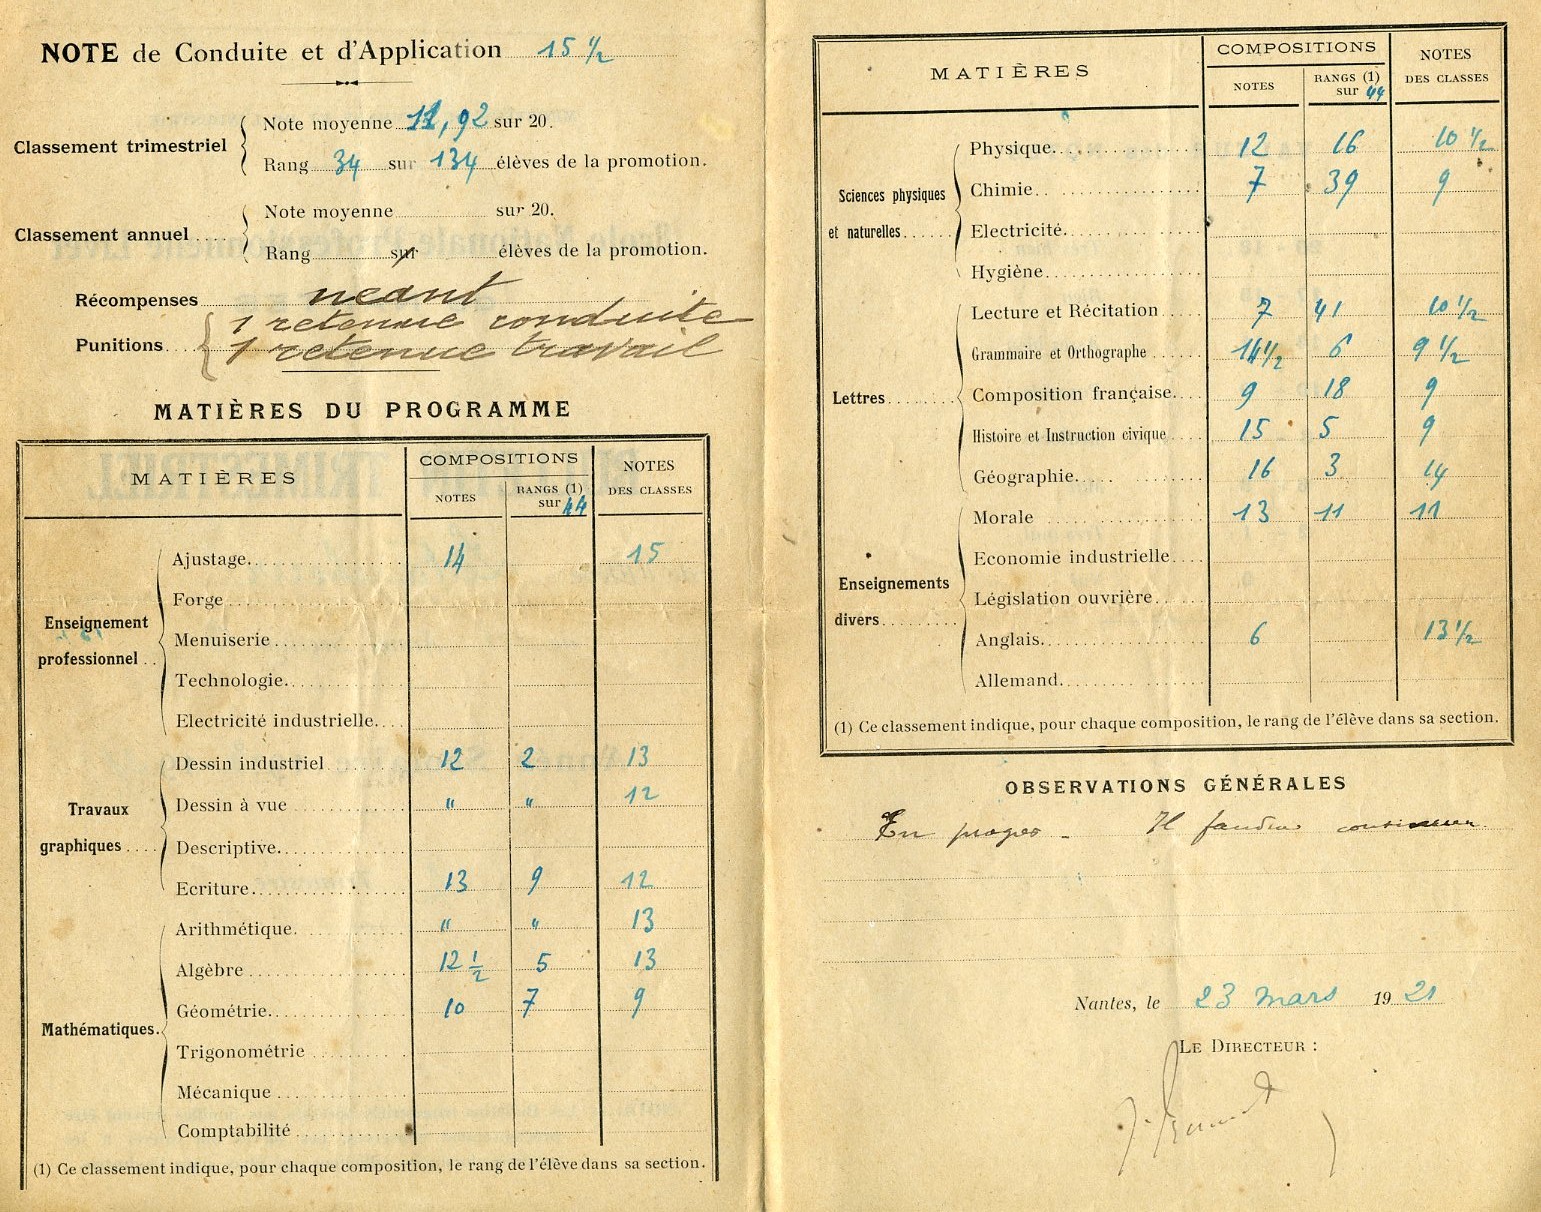 NOTE de Conduite et d'Application 15 ½
Classement trimestriel
Note moyenne 11,92 sur 20.
Rang 34 sur 134 élèves de la promotion.
Classement annuel ....
Note moyenne sur 20.
Rang sur élèves de la promotion.
Récompenses neant
Punitions
1 retenue conduite
1 retenue travail
MATIÈRES DU PROGRAMME
MATIÈRES COMPOSITIONS NOTES DES CLASSES
NOTES RANGS (1) sur 44
Enseignement professionnel
Ajustage 14 15
Forge
Menuiserie
Technologie
Electricité industrielle
Travaux graphiques
Dessin industriel 12 2 13
Dessin à vue " " 12
Descriptive
Ecriture 13 9 12
Mathématiques
Arithmétique " " 13
Algèbre 12 ½ 5 13
Géométrie 10 7 9
Trigonométrie
Mécanique
Comptabilité
(1) Ce classement indique, pour chaque composition, le rang de l'élève dans sa section.
MATIÈRES COMPOSITIONS NOTES DES CLASSES
NOTES RANGS (1) sur 44
Sciences physiques et naturelles
Physique 12 16 10 ½
Chimie 7 39 9
Electricité
Hygiène
Lettres
Lecture et Récitation 7 41 10 ½
Grammaire et Orthographe 14 ½ 6 9 ½
Composition française 9 18 9
Histoire et Instruction civique 15 5 9
Géographie 16 3 14
Enseignements divers
Morale 13 11 11
Economie industrielle
Législation ouvrière
Anglais 6 13 ½
Allemand
(1) Ce classement indique, pour chaque composition, le rang de l'élève dans sa section.
OBSERVATIONS GÉNÉRALES
En progrès - Il faudra continuer
Nantes, le 23 mars 1921
LE DIRECTEUR :